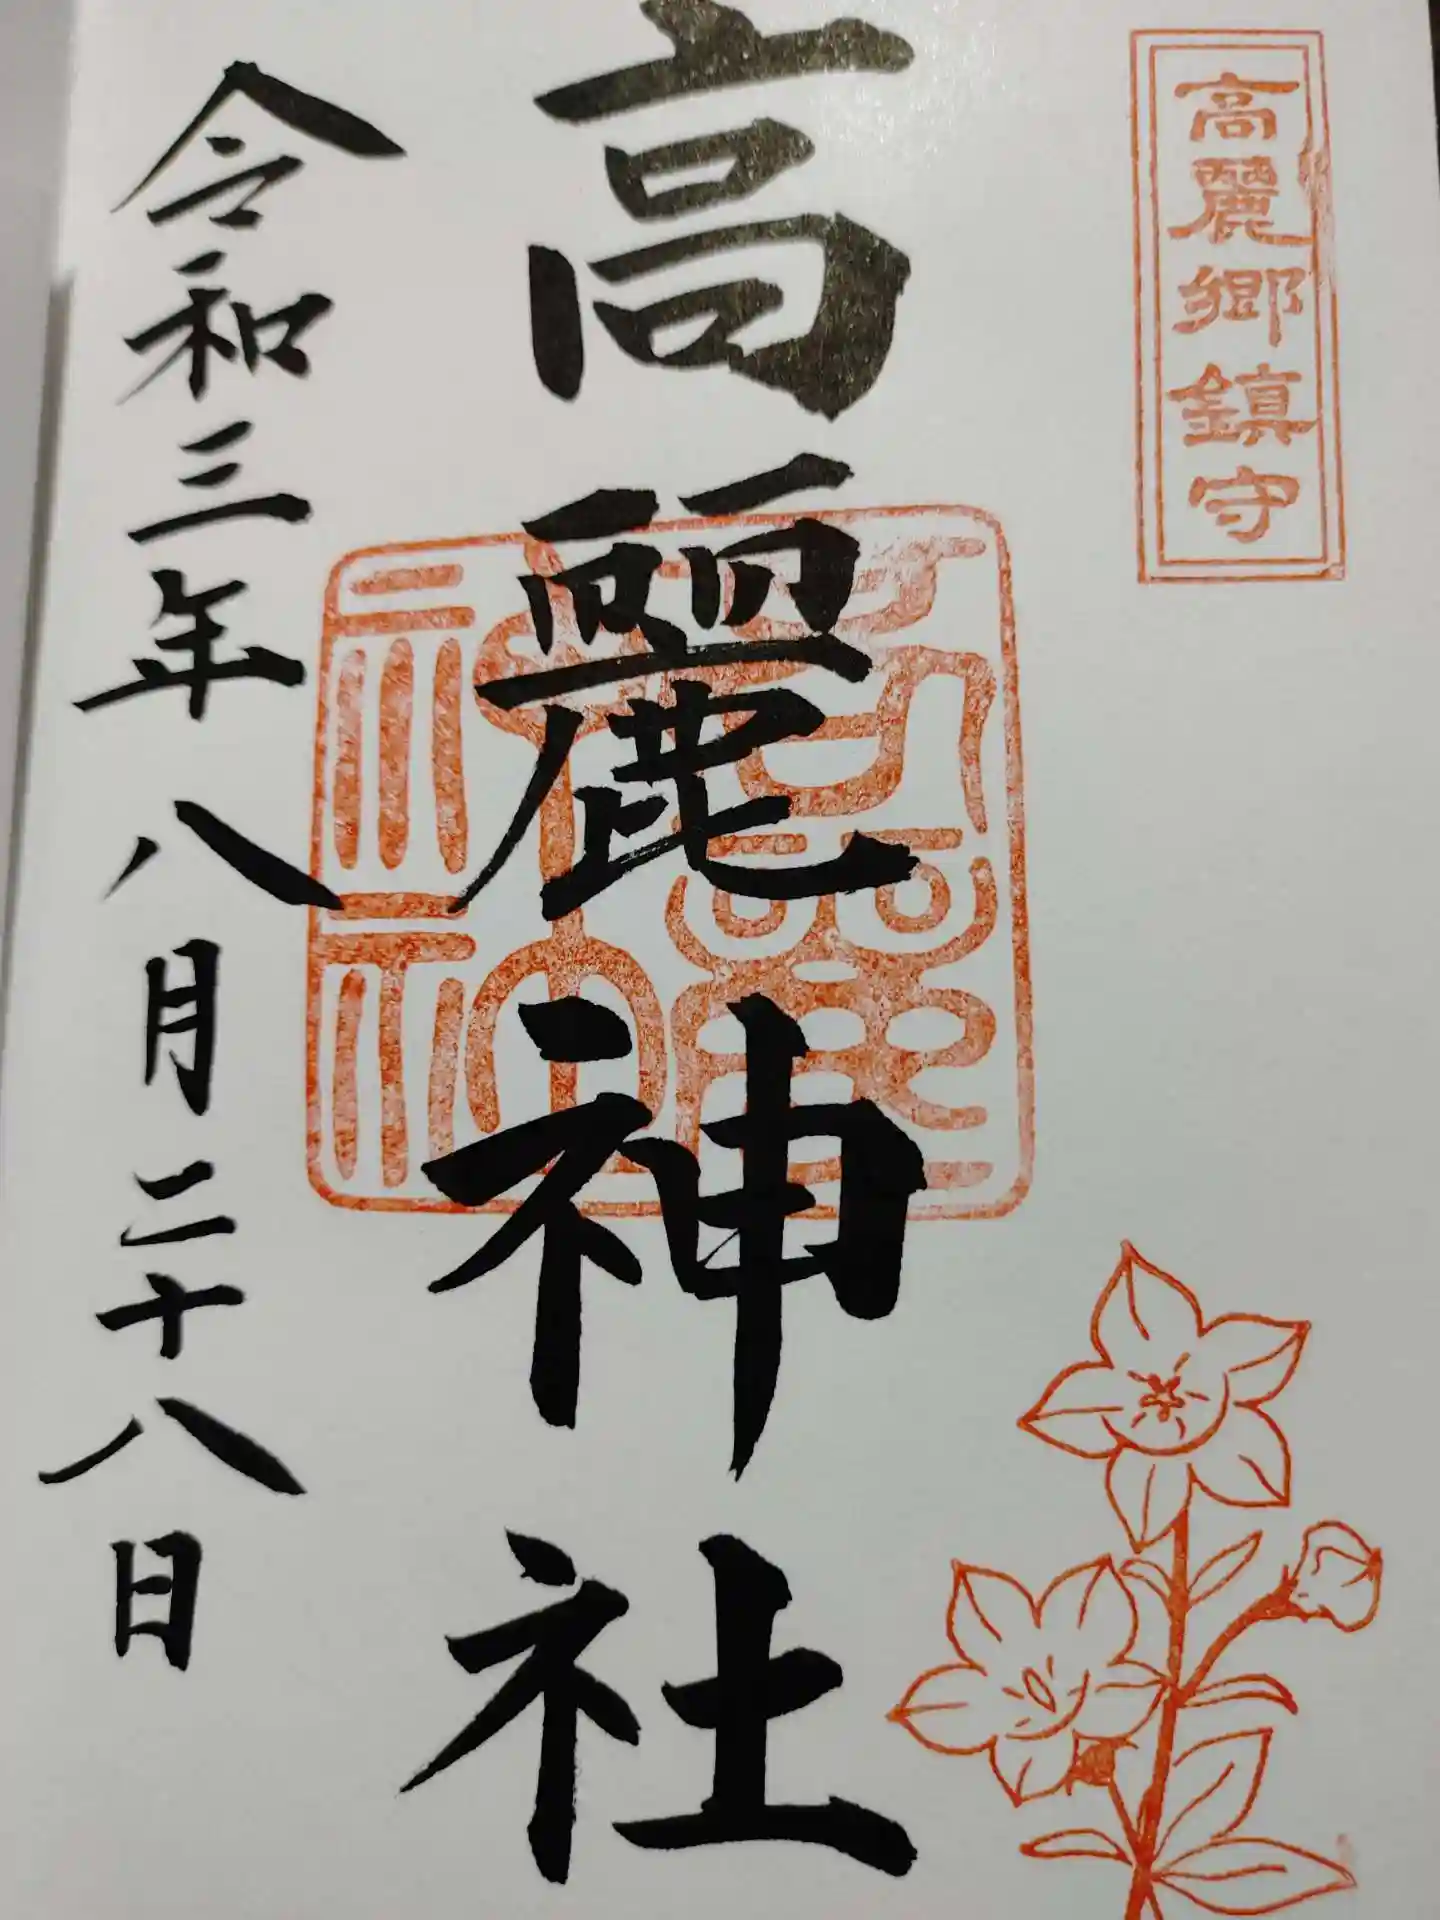 高麗郷鎮守
高麗神社
高麗神社
令和三年八月二十八日